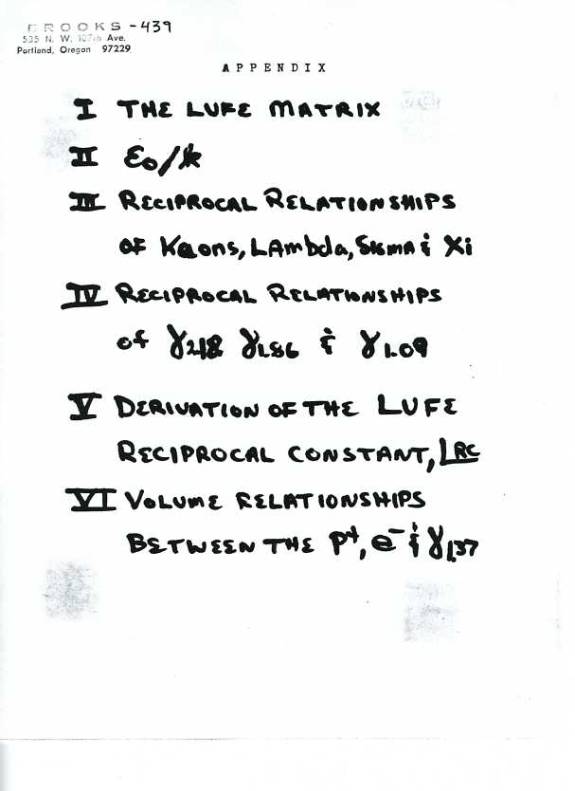 BROOKS - 439
535 N. W. 107th Ave.
Portland, Oregon 97229
APPENDIX
I THE LUFE MATRIX
II ε₀/k
III RECIPROCAL RELATIONSHIPS
OF Kaons, LAmbda, SIGMA & Xi
IV RECIPROCAL RELATIONSHIPS
of γ2.18 γ1.86 & γ1.09
V DERIVATION OF THE LUFE
RECIPROCAL CONSTANT, LRC
VI VOLUME RELATIONSHIPS
BETWEEN THE P⁺, e⁻ & γ1.37